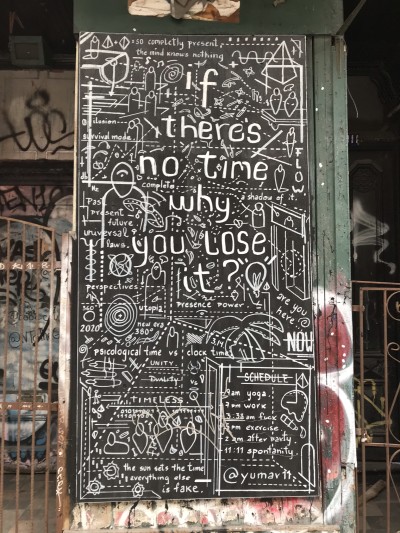 so completly present,
the mind knows nothing
if
there's
no time
why
you lose
it?
ilusion
survival mode
FLOW
complete
a shadow of it.
He
Past
present
future
universal
laws.
perspectives
utopia
presence power.
are you
here
NOW
2020
new era
360°
psicological time vs clock time
UNITY
DUALITY
TIMELESS
SCHEDULE
4am yoga
7pm work
3:33 am fuck
9pm exercise
2 am after party
11:11 spontanity
the sun sets the time
everything else
is fake.
@yumav11